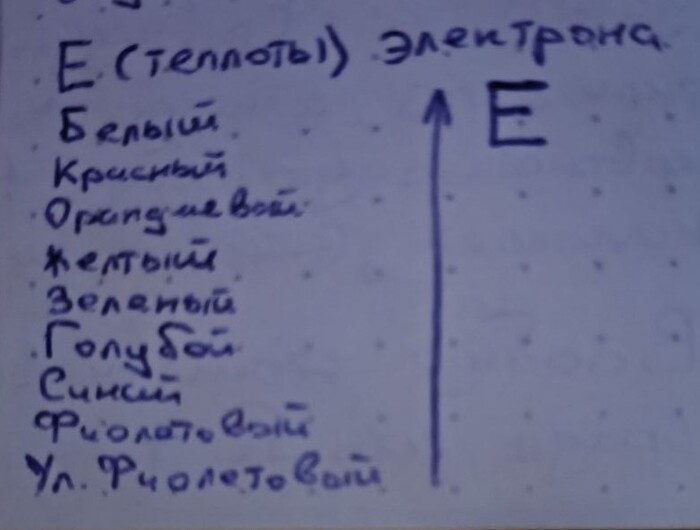 E (теплоты) электрона
E
Белый
Красный
Оранжевый
Желтый
Зеленый
Голубой
Синий
Фиолетовый
Ул. Фиолетовый